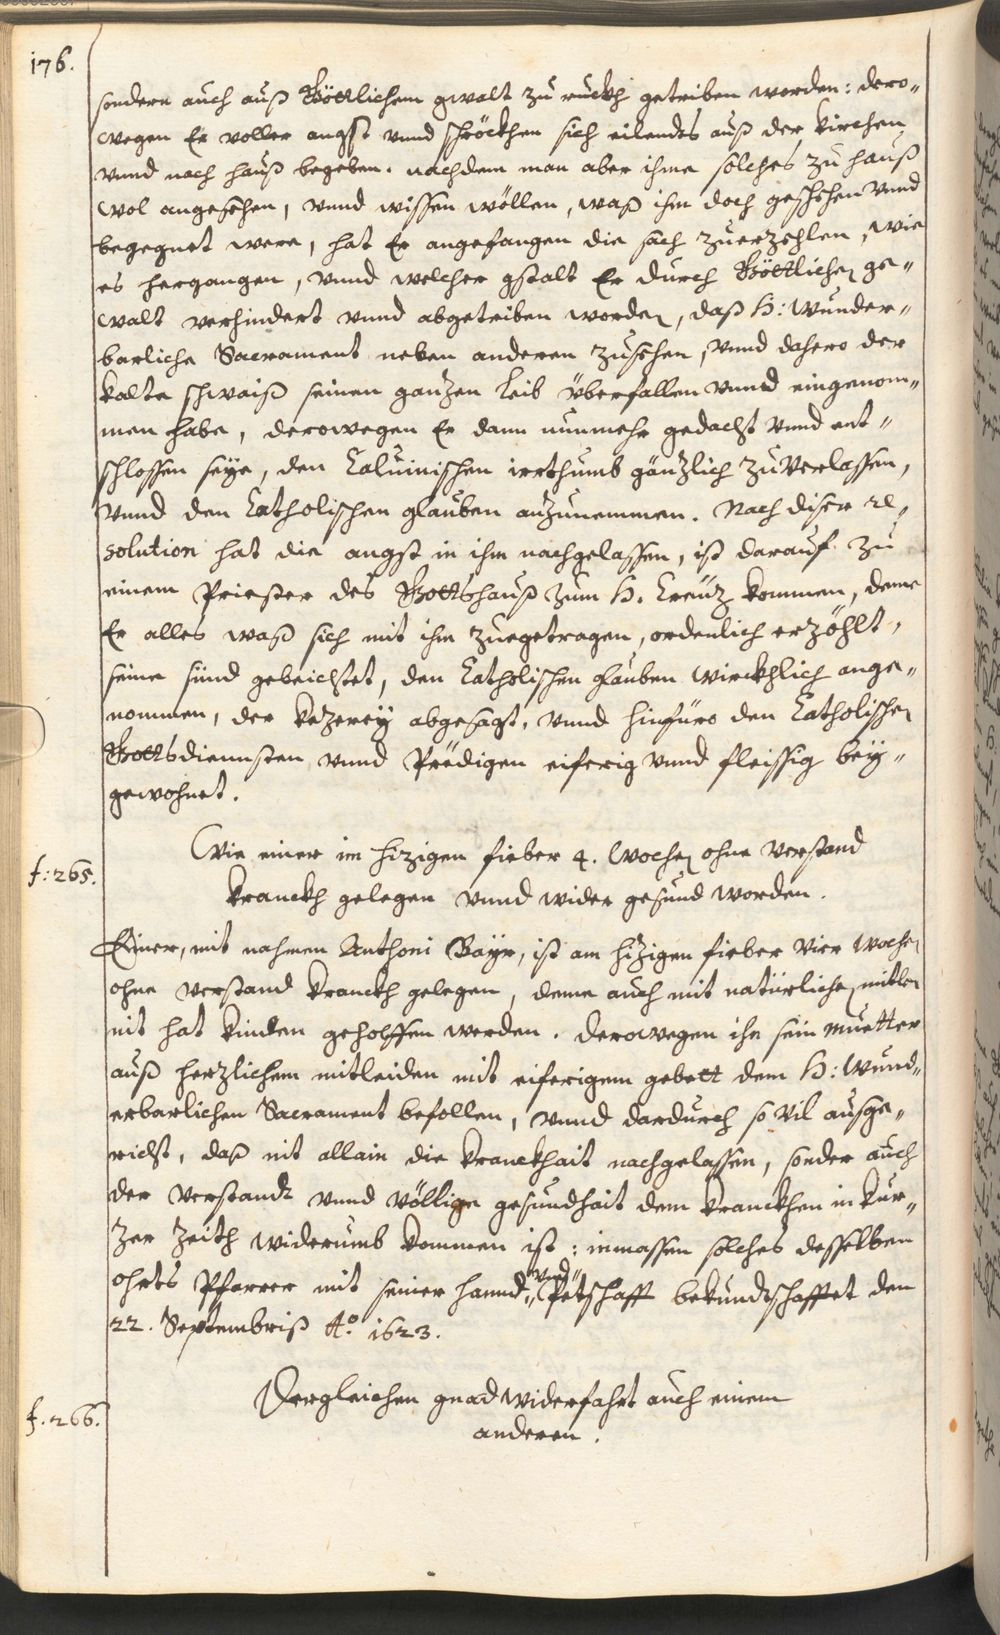 176.
sondern auch auß Göttlichem gwalt zu ruckh getriben worden: dero„
wegen Er voller angst vnnd schröckhen sich eilendts auß der Kirchen
vnnd nach hauß begeben. nachdem man aber ihme solches zu hauß
wol angesehen, vnnd wissen wöllen, waß ihm doch geschehen vnnd
begegnet were, hat Er angefangen die sach zuerzehlen, wie
es hergangen, vnnd welcher gstalt Er durch Göttlichen ge„
walt verhindert vnnd abgetriben worden, daß H: Wunder„
barliche Sacrament neben anderen zusehen, vnnd dahero der
kalte schwaiß seinen ganzen leib überfallen vnnd eingenom„
men habe, derowegen Er dann nunmehr gedacht vnnd ent„
schlossen seye, den Caluinischen irrthumb gänzlich zuverlassen,
vnnd den Catholischen glauben anzunemmen. Nach diser re„
solution hat die angst in ihm nachgelassen, ist darauf zu
einem Priester des Gottshauß zum H. Creütz kommen, deme
Er alles waß sich mit ihm zuegetragen, ordenlich erzöhlt,
seine sünd gebeichtet, den Catholischen glauben würckhlich ange„
nommen, der Kezerey abgesagt, vnnd hinfüro den Catholischen
Gottsdiennsten vnnd Predigen eiferig vnnd fleissig bey„
gewohnet.
f: 265.
Wie einer im hizigen fieber 4. Wochen ohne verstand
kranckh gelegen vnnd wider gesund worden.
Einer, mit nahmen Anthoni Bayr, ist am hizigen fieber vier Wochen
ohne verstand kranckh gelegen, deme auch mit natürlichen mitlen
nit hat kinden geholffen werden. derowegen ihn sein muetter
auß herzlichem mitleiden mit eiferigem gebett dem H: Wund„
erbarlichen Sacrament befollen, vnnd dardurch so vil ausge„
richt, daß nit allain die kranckhait nachgelassen, sonder auch
der verstandt vnnd völlige gesundhait dem kranckhen in kur„
zer zeith widerumb kommen ist: inmassen solches desselben
ohrts Pfarrer mit seiner hannd„ vnd„ Petschafft bekundtschafftet den
22. Septembriß Aº. 1623.
f. 266.
Dergleichen gnad widerfahrt auch einem
anderen.